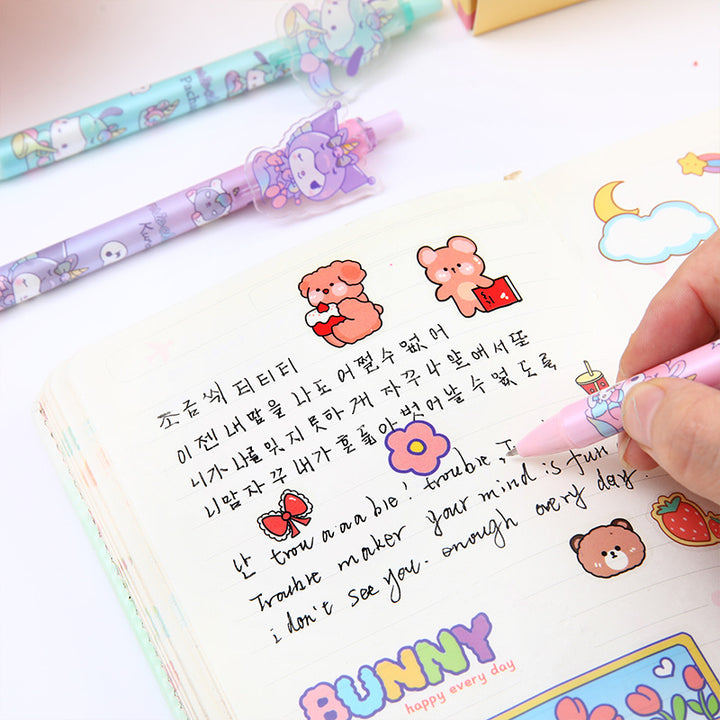 Pacha
Kuro
조금씩 티티티
이젠 내 맘을 나도 어쩔 수 없어
니가 나를 잊지 못하게 자꾸 나 앞에서 또
니 맘 자꾸 내가 흔들 아 벗어날 수 없도록
난 trou a aa ble! trouble,
Trouble maker your mind is fun
i don't see you. enough every day.
BUNNY
happy every day